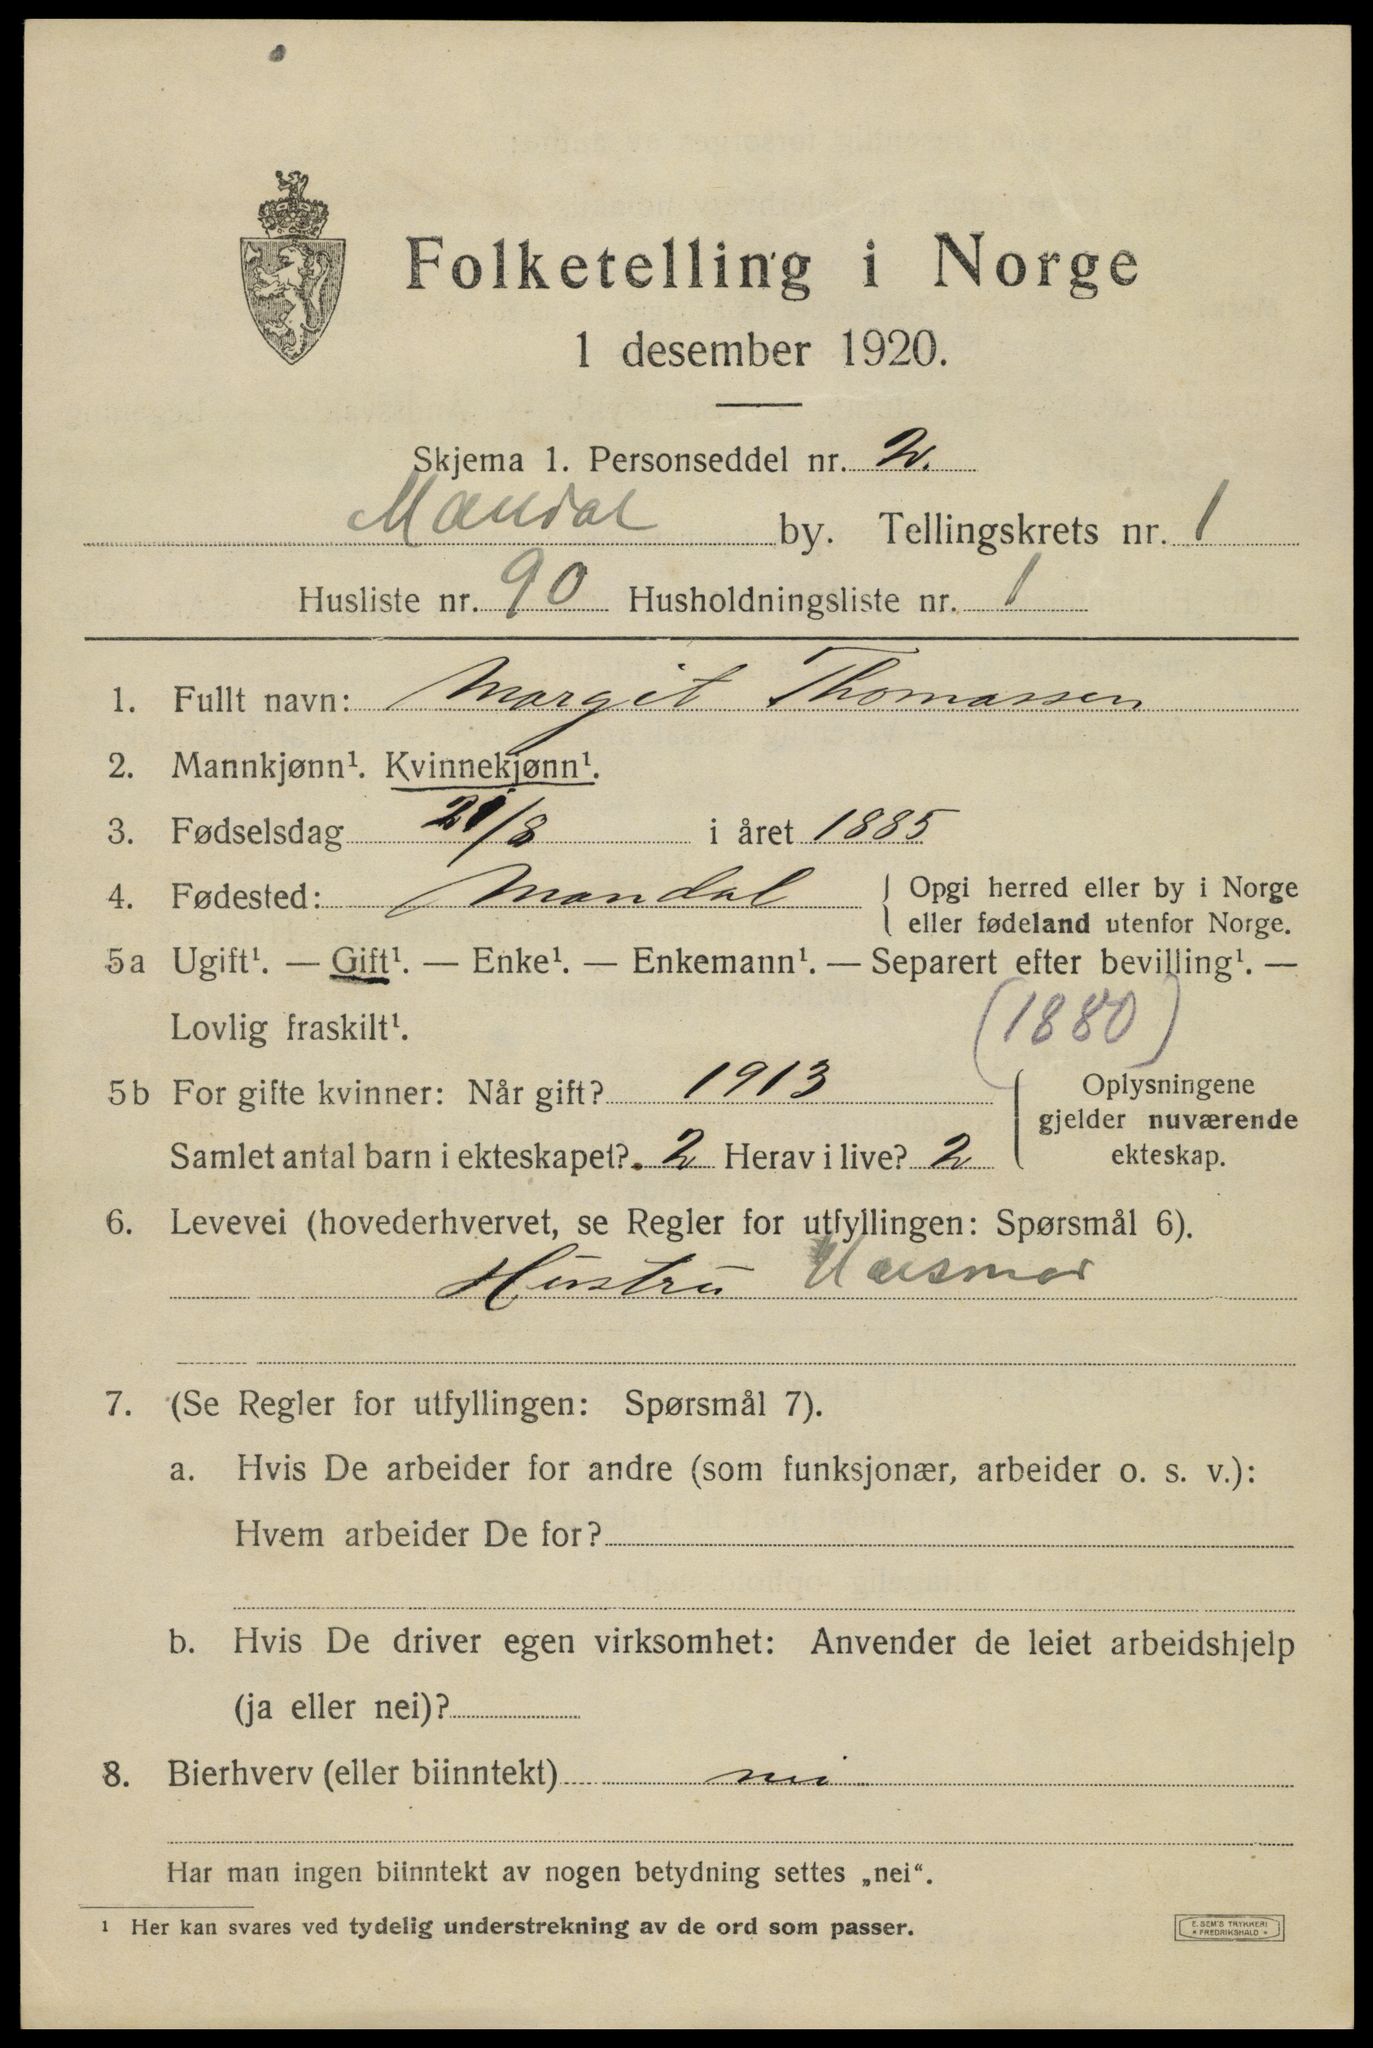 Folketelling i Norge
1 desember 1920.
Skjema 1. Personseddel nr. 2.
Mandal by. Tellingskrets nr. 1
Husliste nr. 90 Husholdningsliste nr. 1
1. Fullt navn: Margit Thomassen
2. Mannkjønn¹. Kvinnekjønn¹.
3. Fødselsdag 21/8 i året 1885
4. Fødested: Mandal { Opgi herred eller by i Norge
eller fødeland utenfor Norge.
5a Ugift¹. — Gift¹. — Enke¹. — Enkemann¹. — Separert efter bevilling¹. —
Lovlig fraskilt¹. (1880)
5b For gifte kvinner: Når gift? 1913
Samlet antal barn i ekteskapet? 2 Herav i live? 2
{ Oplysningene
gjelder nuværende
ekteskap.
6. Levevei (hovederhvervet, se Regler for utfyllingen: Spørsmål 6).
Hustru Husmor
7. (Se Regler for utfyllingen: Spørsmål 7).
a. Hvis De arbeider for andre (som funksjonær, arbeider o. s. v.):
Hvem arbeider De for?
b. Hvis De driver egen virksomhet: Anvender de leiet arbeidshjelp
(ja eller nei)?
8. Bierhverv (eller biinntekt) nei
Har man ingen biinntekt av nogen betydning settes „nei“.
¹ Her kan svares ved tydelig understrekning av de ord som passer.
E. SEM'S TRYKKERI
* FREDRIKSHALD *